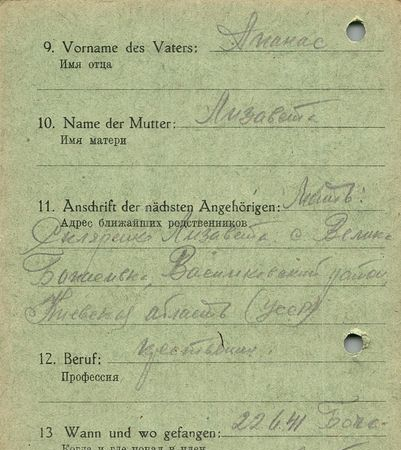 9. Vorname des Vaters: Апанас
Имя отца
10. Name der Mutter: Лизавета
Имя матери
11. Anschrift der nächsten Angehörigen: Мать:
Адрес ближайших родственников
Скляренко Лизавета с. Велика
Васильковский район,
Киевская область (УССР)
12. Beruf:
Профессия
13 Wann und wo gefangen: 22.6.41
Когда и где попал в плен